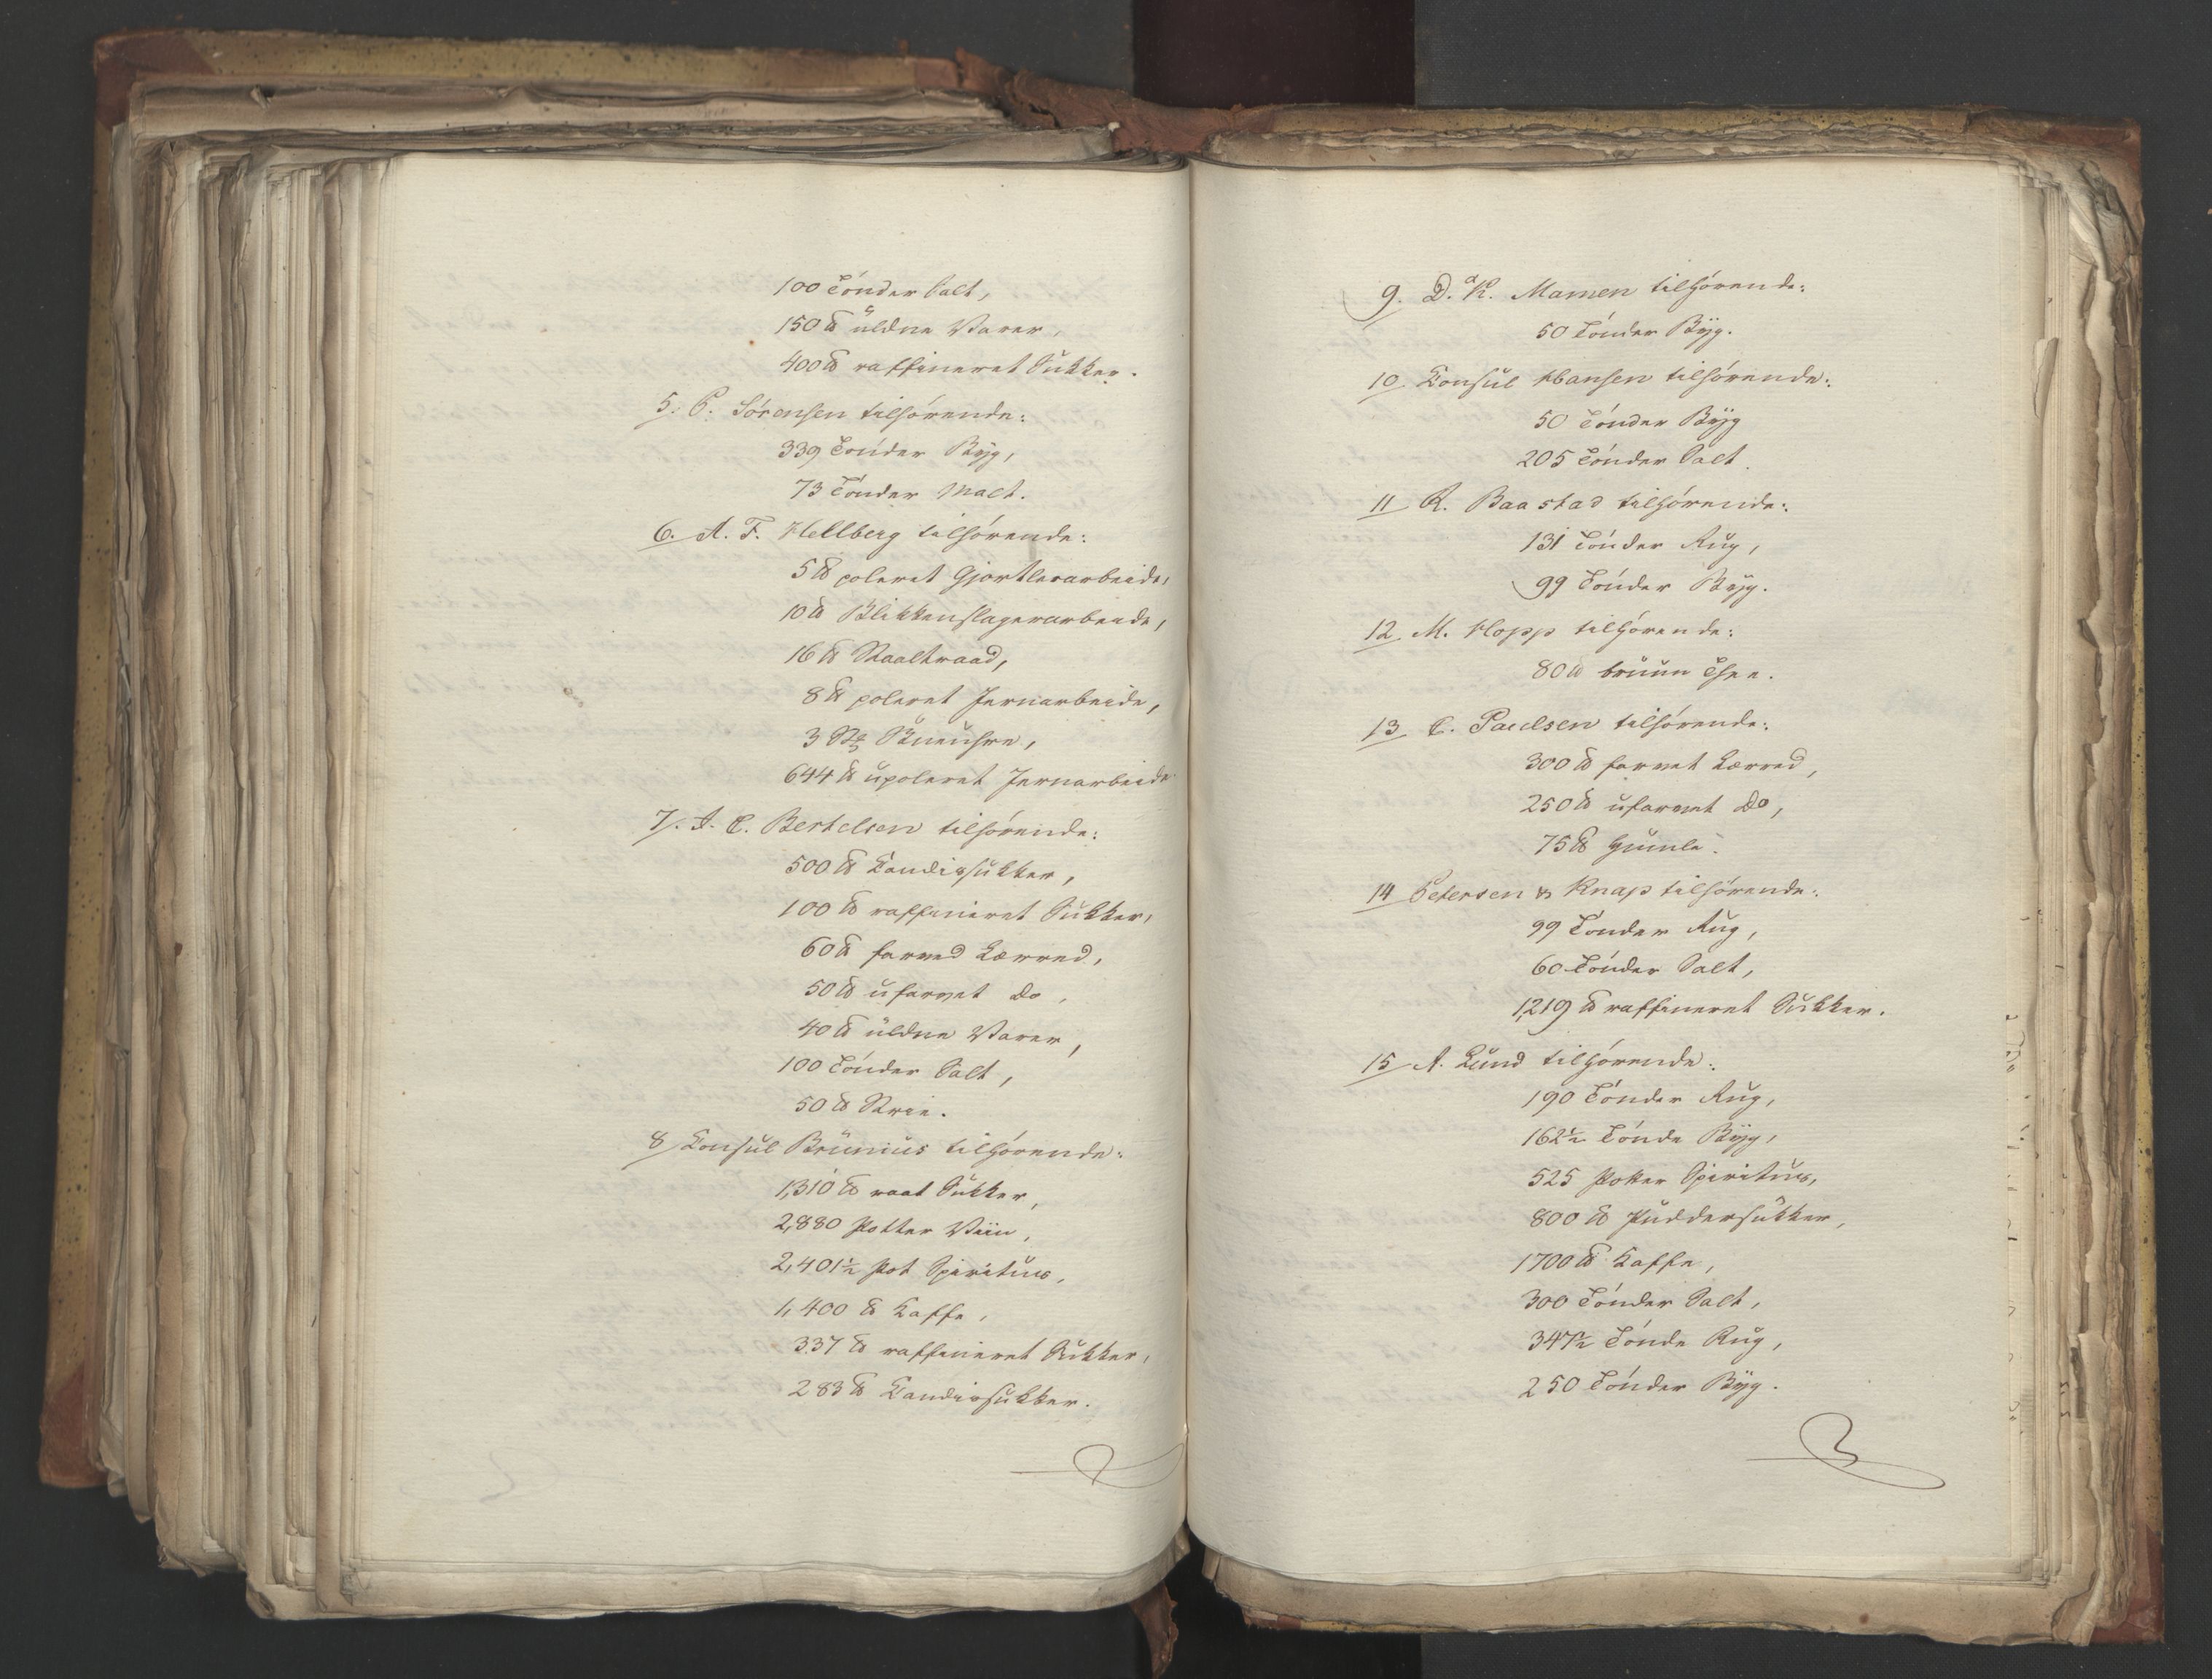 100 Tönder Salt,
150 ℔ uldne Varer,
400 ℔ raffineret Sukker.
5. P. Sörensen tilhörende:
339 Tönder Byg,
73 Tönder Malt.
6. A. F. Hellberg tilhörende:
5 ℔ poleret Gjørtlerarbeide,
10 ℔ Blikkenslagerarbeide,
16 ℔ Staaltraad,
8 ℔ poleret Jernarbeide,
3 Stk
644 ℔ upoleret Jernarbeide
7. C. Bertelsen tilhörende:
500 ℔ Kandissukker,
100 ℔ raffineret Sukker,
60 ℔ farved Lærred,
50 ℔ ufarvet do,
40 ℔ uldne Varer,
100 Tönder Salt,
50 ℔ Strie.
8 Consul Brunius tilhörende:
1,310 ℔ raat Sukker,
2,880 Potter Viin,
2,401½ Pot Spiritus,
1,400 ℔ Kaffe,
337 ℔ raffineret Sukker,
283 ℔ Kandissukker.
9. D. & K. Mamen tilhörende:
50 Tönder Byg.
10 Consul Hansen tilhörende:
50 Tönder Byg
205 Tönder Salt.
11 R. Baastad tilhörende:
131 Tönder Rug,
99 Tönder Byg.
12 M. Hopp tilhörende:
80 ℔ bruun Thee.
13 C. Paulsen tilhörende:
300 ℔ farvet Lærred,
250 ℔ ufarvet do,
75 ℔ Humle.
14 Petersen & Knap tilhörende:
99 Tönder Rug,
60 Tönder Salt,
1,219 ℔ raffineret Sukker.
15 A. Lund tilhörende:
190 Tönder Rug,
162½ Tönde Byg,
525 Potter Spiritus,
800 ℔ Puddersukker,
1700 ℔ Kaffe,
300 Tönder Salt,
347½ Tönde Rug,
250 Tönder Byg.